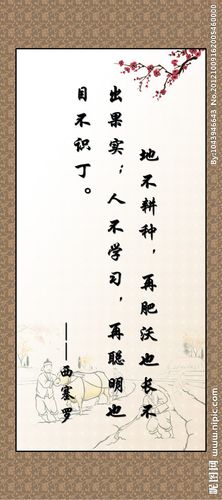 地不耕种，再肥沃也长不
出果实；人不学习，再聪明也
目不识丁。
——西塞罗
昵图网 www.nipic.com
By:1043946643 No.20121009162005460000